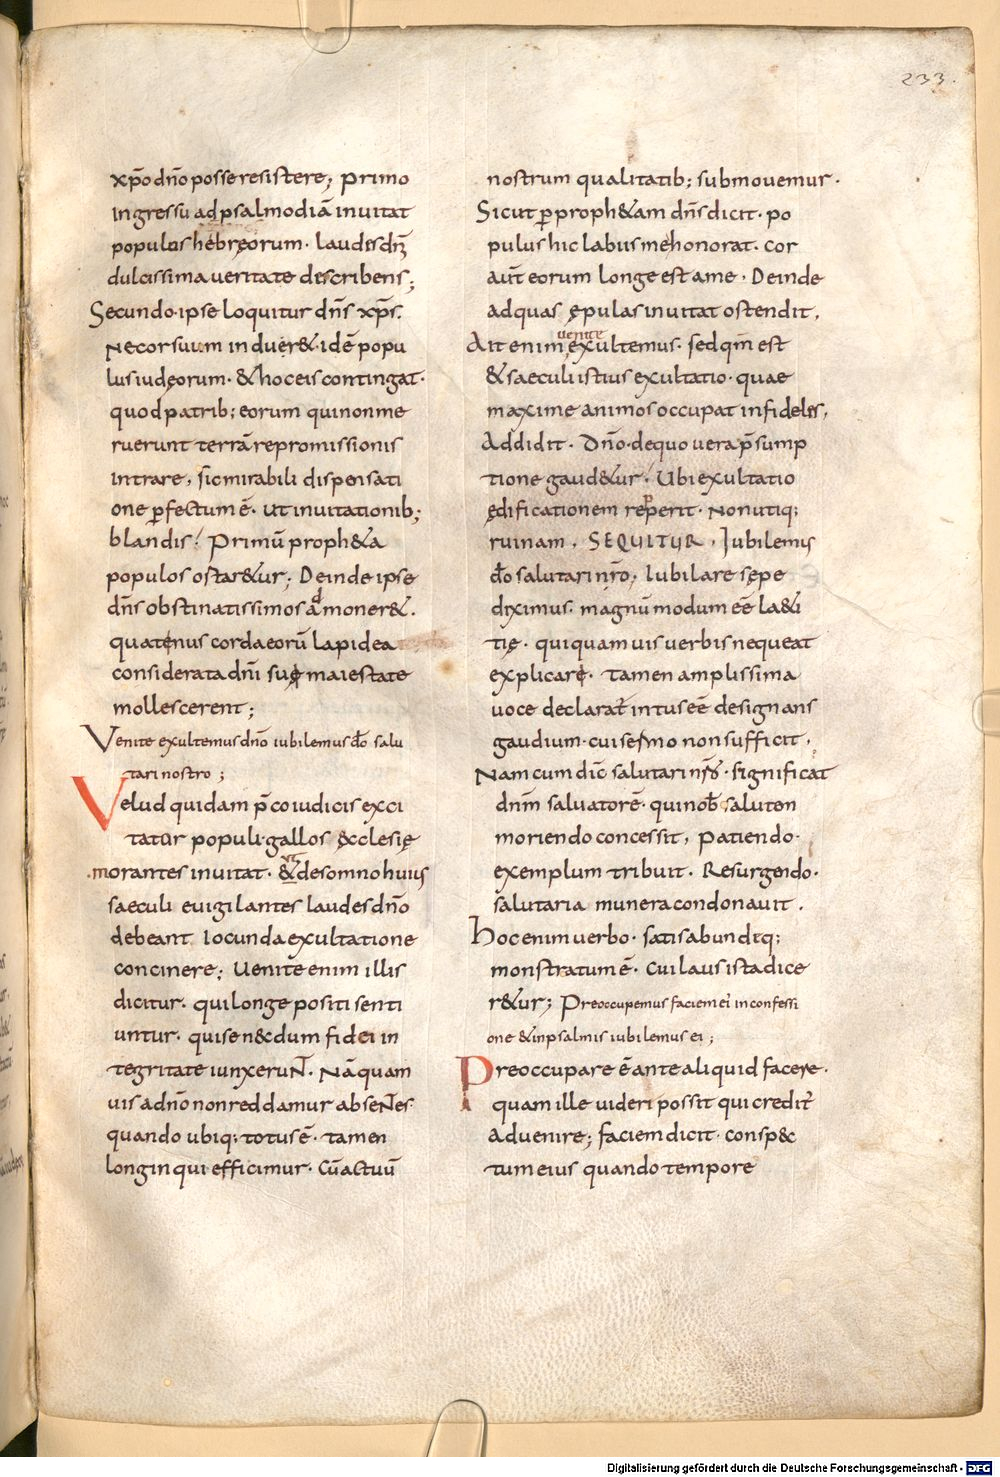 233.
xp̄o dn̄o posse resistere; primo
ingressu ad psalmodiā inuitat
populus hebreorum · laudis dn̄i
dulcissima ueritate describens;
Secundo · ipse loquitur dn̄s xp̄s.
Ne cor suum induer& · idē popu
lus iudęorum · & hoc eis contingat ·
quod patrib; eorum qui non me
ruerunt terrā repromissionis
intrare, sic mirabili dispensati
one ꝑfectum ē · ut inuitationib;
blandis! Primū proph&a
populos ostar&ur; Deinde ipse
dn̄s obstinatissimos admoner& ·
quatenus corda eorū lapidea
considerata dn̄i suę maiestate
mollescerent;
Venite exultemus dn̄o iubilemus dō salu
tari nostro;
Velud quidam p̄co iudicis exci
tatur populi · gallos ęcclesię
morantes inuitat · & ut de somno huius
saeculi euigilantes laudes dn̄o
debeant iocunda exultatione
concinere; Uenite enim illis
dicitur · qui longe positi senti
untur · qui se n&dum fidei in
tegritate iunxeruNT. Nā quam
uis ad n̄o non reddamur abseNTes ·
quando ubiq; totus ē · tamen
longinqui efficimur · Cū actuū
nostrum qualitatib; submouemur ·
Sicut ꝑ proph&am dn̄s dicit · po
pulus hic labiis me honorat · cor
aut̄ eorum longe est a me · Deinde
ad quas ępulas inuitat ostendit,
Ait enim uenite exultemus · sed qm̄ est
& saeculi istius exultatio · quae
maxime animos occupat infideles,
Addidit · Dn̄o · de quo uera p̄sump
tione gaud&ur! Ubi exultatio
ędificationem repperit · Non utiq;
ruinam. SEQUITUR. Jubilemus
dō salutari nr̄o; Iubilare sępe
diximus · magnū modum eē lę&i
tię · qui quamuis uerbis nequeat
explicare · tamen amplissima
uoce declarat̄ intus eē designans
gaudium · cui sermo non sufficit,
Nam cum dic̄ salutari nr̄o · significat
dn̄m saluatorē · qui nob̄ salutem
moriendo concessit, Patiendo ·
exemplum tribuit · Resurgendo ·
salutaria munera condonauit.
Hoc enim uerbo · satis abundeq;
monstratum ē · Cui laus ista dice
r&ur; Preoccupemus faciem ei᷒ in confessi
one & in psalmis iubilemus ei;
Preoccupare ē ante aliquid facere ·
quam ille uideri possit qui credit̄
aduenire; faciem dicit · consp&c
tum eius quando tempore
Digitalisierung gefördert durch die Deutsche Forschungsgemeinschaft - DFG